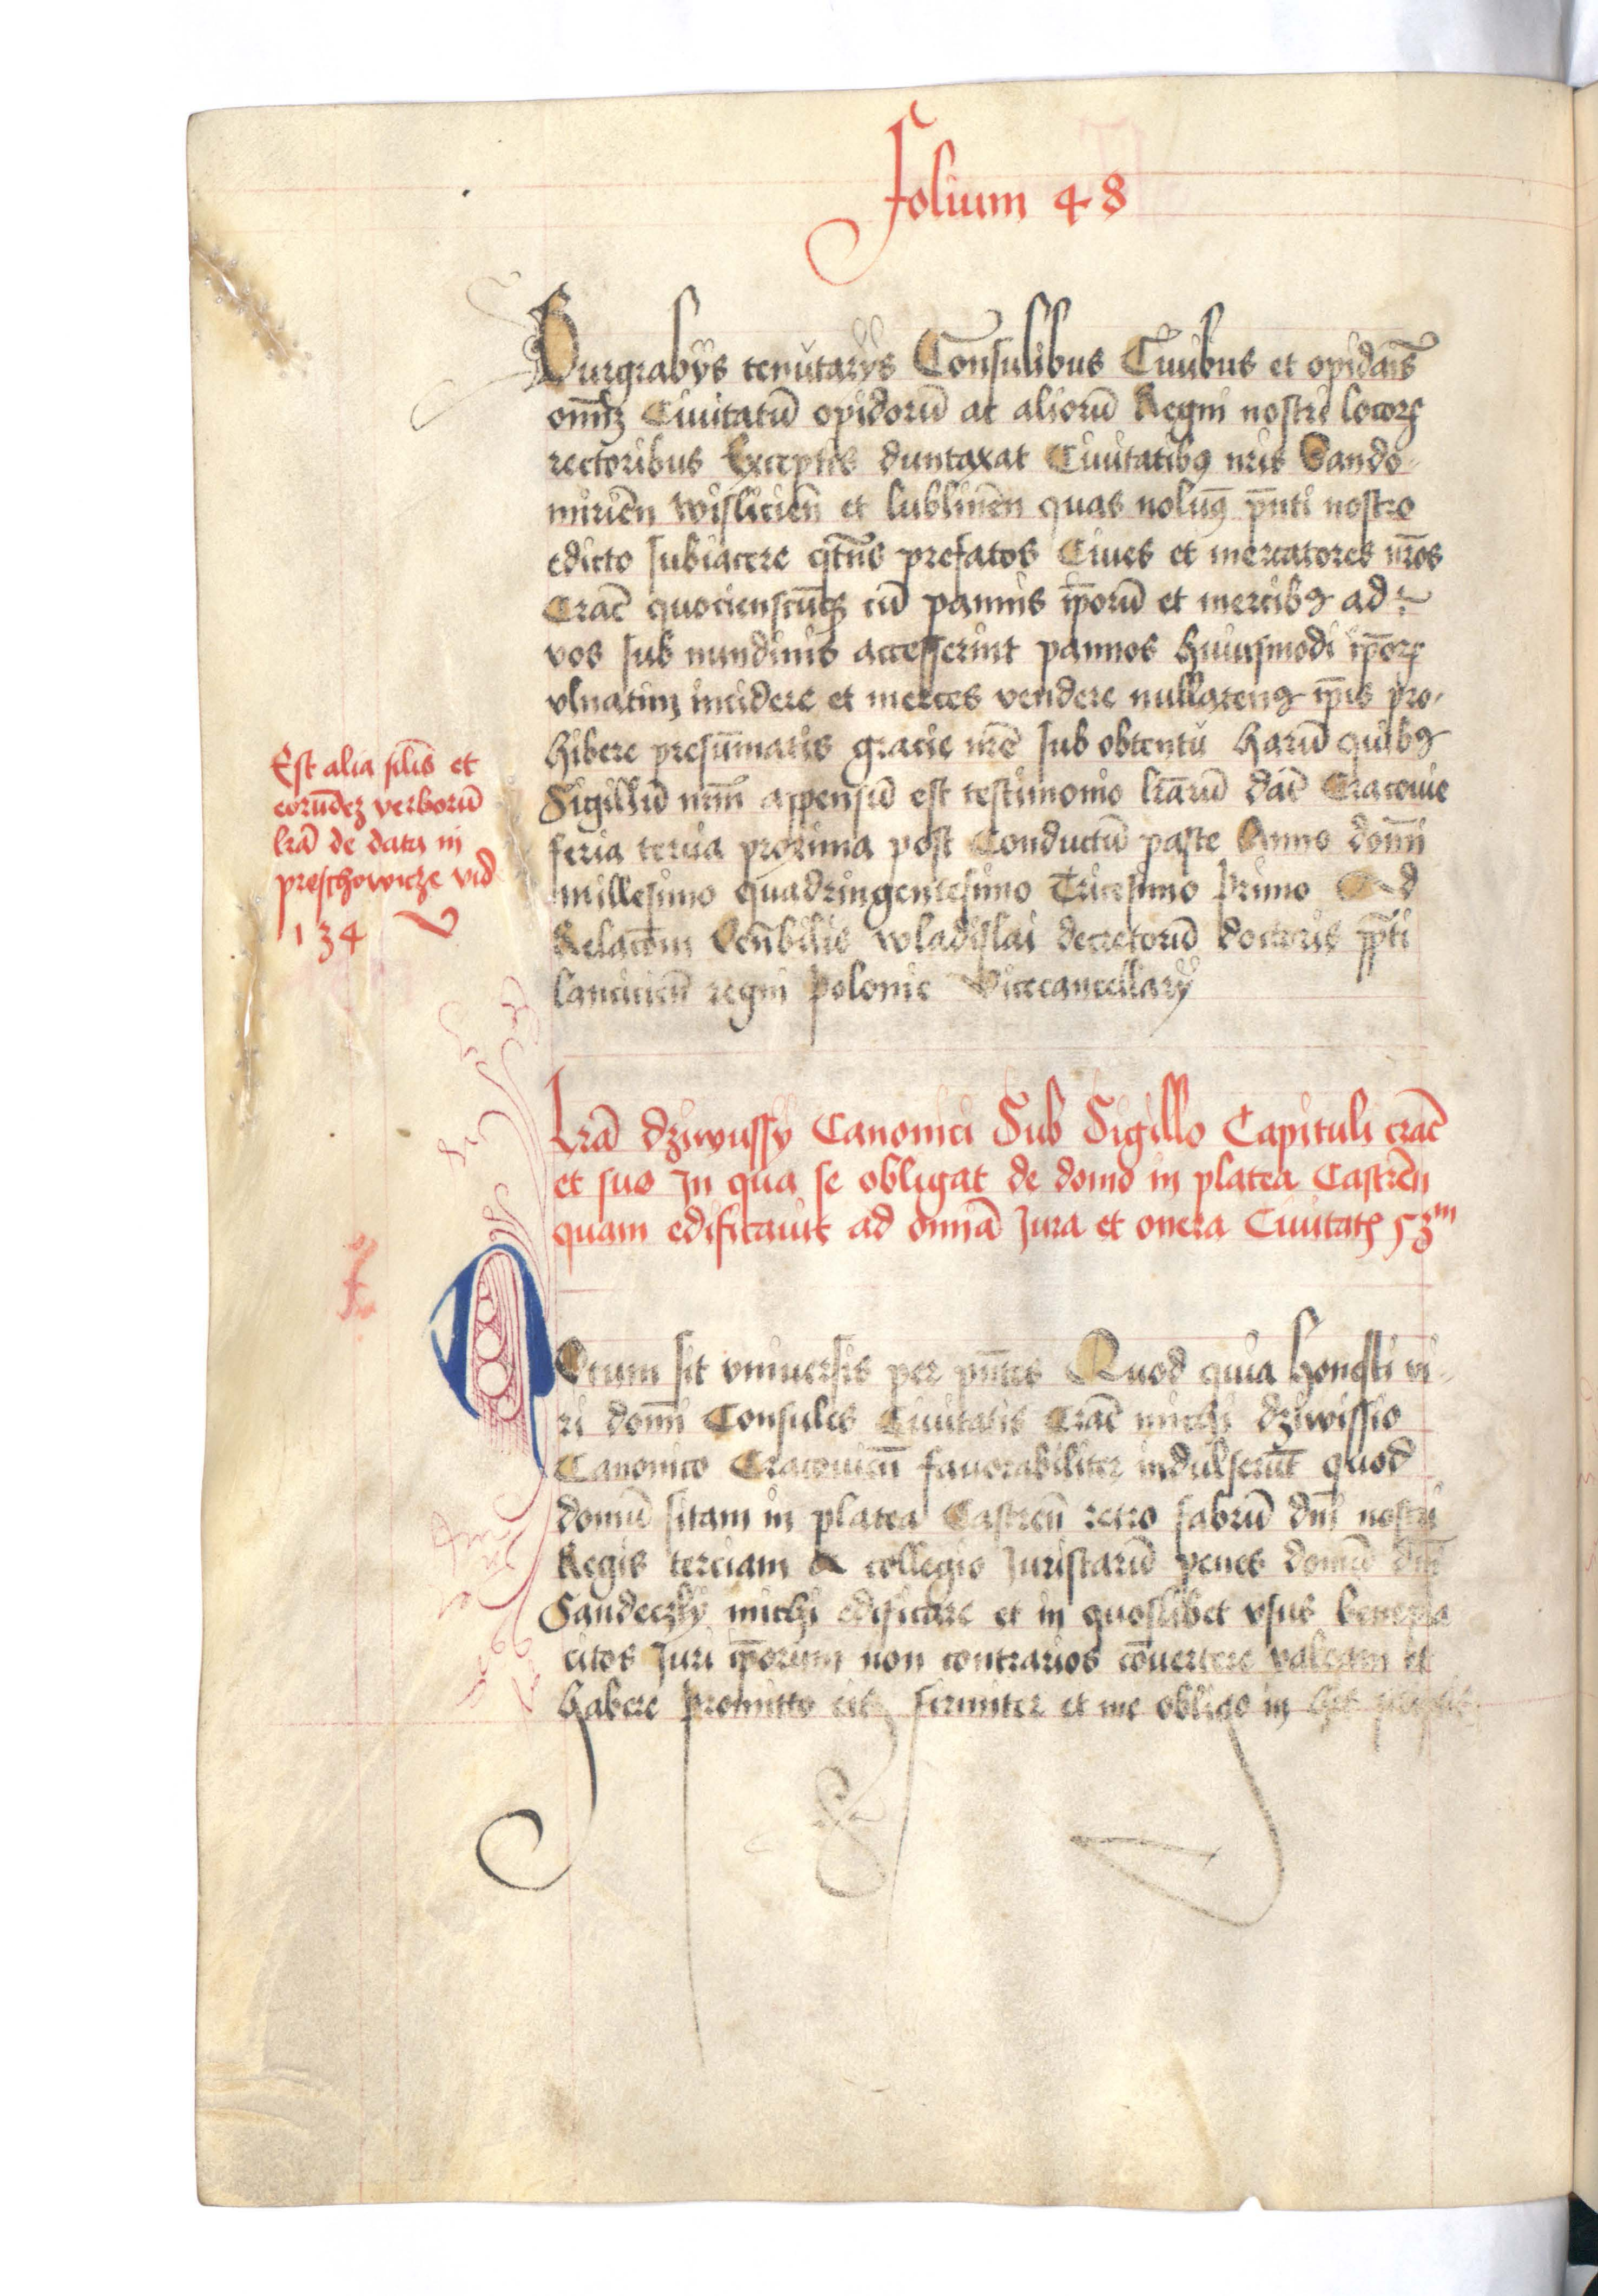 Folium 48
Burgrabijs tenutarijs Consulibus Ciuibus et opidan̄s
om̄iꝫ Ciuitatū opidorū ac aliorū Regni nostri locorꝝ
rectoribus Exceptis duntaxat Ciuitatibꝫ nr̄is Sando-
mirien̄ wislicien̄ et lublinen̄ quas nolum̄ꝫ pn̄ti nostro
edicto subiacere qt̄n̄s prefatos Ciues et mercatores nr̄os
Crac̄ quocienscūqꝫ cū pannis ip̄orū et mercibꝫ ad
vos sub nundinis accesserint pannos huiusmodi ip̄orꝝ
vlnatim incidere et merces vendere nullatenꝫ ip̄is pro-
hibere presūmatis gracie nr̄e sub obtentu harū quibꝫ
Sigillū nr̄m appensū est testimonio lr̄arū Dat̄ Cracouie
feria tercia proxima post Conductū pasce Anno dom̄i
millesimo quadringentesimo Tricesimo Primo Ad
Relacōm Ven̄bilis wladislai decretorū doctoris pp̄ti
lancicien̄ regni Polonie Vicecancellarij
Est alia sil̄is et
eorūdeꝫ verborū
lr̄a de data in
preschowicze vid̄
134
Lr̄a dziwussy Canonici Sub Sigillo Capituli crac̄
et suo In qua se obligat de domo in platea Castren̄
quam edificauit ad om̄ia Jura et onera Ciuitatꝭ 53ᵐ
NOtum sit vniuersis per pn̄tes Quod quia honesti vi-
ri dom̄i Consules Ciuitatis Crac̄ michi dziwissio
Canonico Cracouien̄ fauorabiliter indulserūt quod
domū sitam in platea Castren̄ retro fabrū dn̄i nostri
Regis terciam a collegio Juristarū penes domū dn̄i
Sandeczky michi edificare et in quoslibet vsus benepla
citos Juri ip̄orum non contrarios cōuertere valeam et
habere Promitto eis firmiter et me obligo in hijs